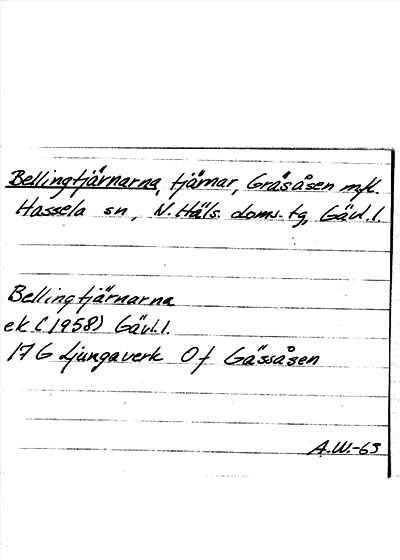 Bellingtjärnarna, tjärnar, Gräsåsen mfl.
Hassela sn, N. Häls. doms. tg, Gävl. l.
Bellingtjärnarna
ek (1958) Gävl. l.
17 G Ljungaverk 0 f Gässåsen
A.W.-63